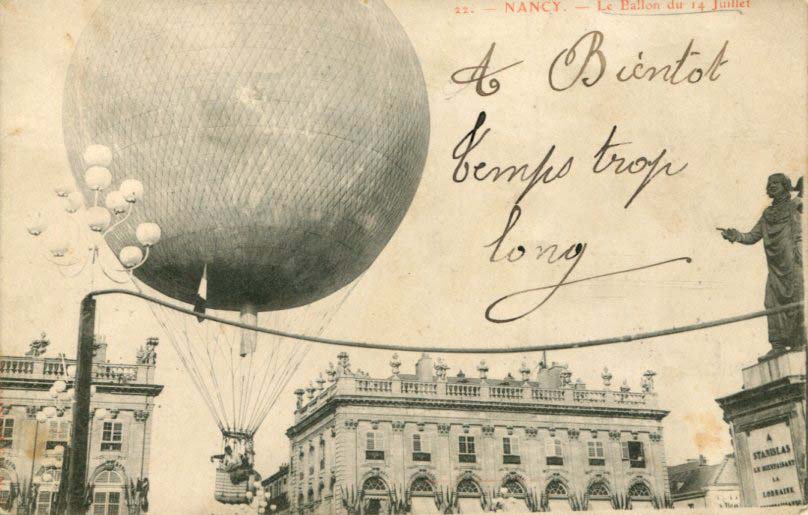 22. — NANCY. — Le Ballon du 14 Juillet
A Bientot
temps trop
long
A
STANISLAS
LE BIENFAISANT
LA
LORRAINE
RECONNAISSANTE